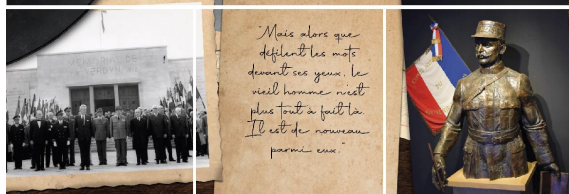 VERDUN
"Mais alors que
défilent les mots
devant ses yeux, le
vieil homme n'est
plus tout à fait là.
Il est de nouveau
parmi eux."